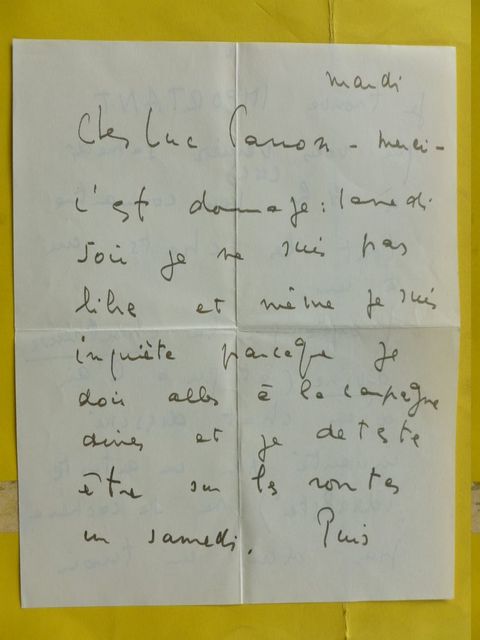 mardi
Cher Luc Canon - merci -
c'est dommage : samedi
soir je ne suis pas
libre et même je suis
inquiète parceque je
dois aller à la campagne
diner et je deteste
être sur les routes
un samedi. Puis